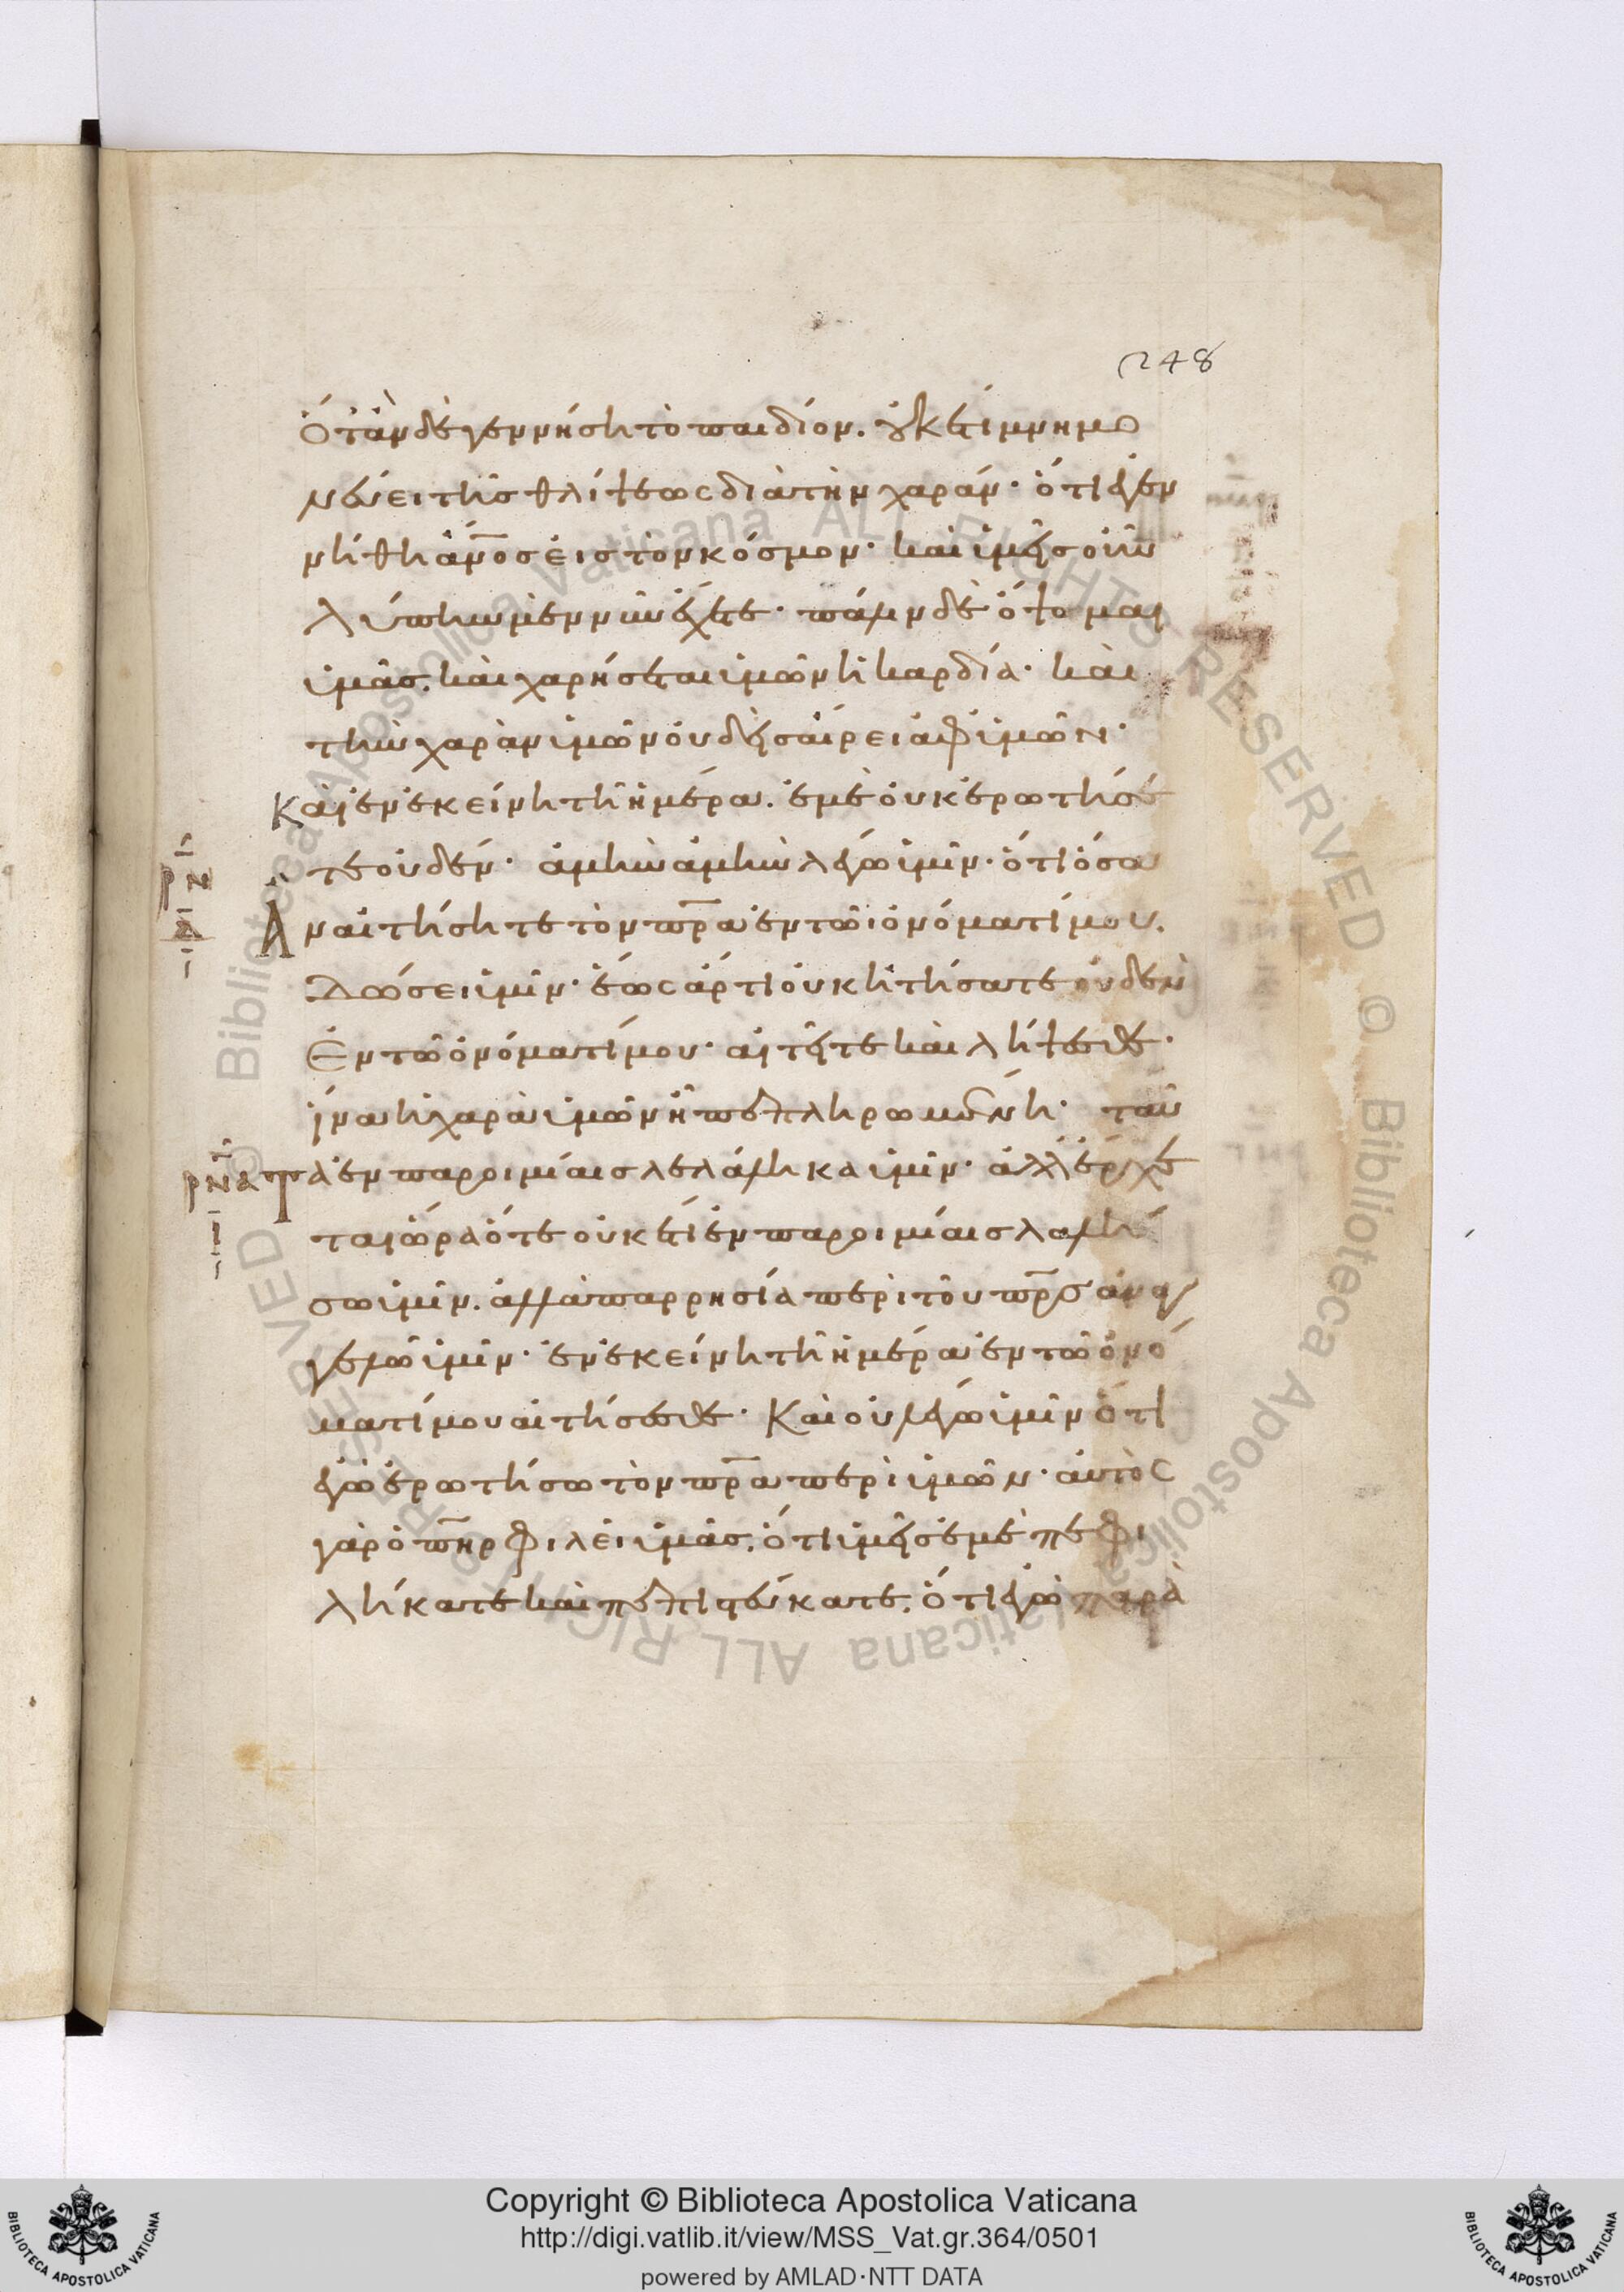 248
ὅταν δὲ γεννήση τὸ παιδίον. οὐκέτι μνημο
νεύει τῆς θλίψεως διὰ τὴν χαράν· ὅτι ἐγεν
νήθη ἄνος εἰς τὸν κόσμον· καὶ ὑμεῖς οὖν
λύπην μὲν νῦν ἔχετε· πάλιν δὲ ὄψομαι
ὑμᾶς. καὶ χαρήσεται ὑμῶν ἡ καρδία· καὶ
τὴν χαρὰν ὑμῶν οὐδεὶς αἴρει ἀφ' ὑμῶν·
Καὶ ἐν ἐκείνη τῆ ἡμέρα. ἐμὲ οὐκ ἐρωτήσε
τε οὐδέν· ἀμὴν ἀμὴν λέγω ὑμῖν· ὅτι ὅσα
ρν
Ἂν αἰτήσητε τὸν πρα ἐν τῶ ὀνόματί μου.
Δώσει ὑμῖν· ἕως ἄρτι οὐκ ἠτήσατε οὐδὲν
Ἐν τῶ ὀνόματί μου· αἰτεῖτε καὶ λήψεσθε·
ἵνα ἡ χαρὰ ὑμῶν ἦ πεπληρωμένη· ταῦ
ρνα
τα ἐν παροιμίαις λελάληκα ὑμῖν· ἀλλ' ἔρχε
ται ὥρα ὅτε οὐκέτι ἐν παροιμίαις λαλή
σω ὑμῖν. ἀλλὰ παρρησία περὶ τοῦ πρς ἀναγ
γελῶ ὑμῖν· ἐν ἐκείνη τῆ ἡμέρα ἐν τῶ ὀνό
ματί μου αἰτήσεσθε· Καὶ οὐ λέγω ὑμῖν ὅτι
ἐγὼ ἐρωτήσω τὸν πρα περὶ ὑμῶν· αὐτὸς
γὰρ ὁ πηρ φιλεῖ ὑμᾶς. ὅτι ὑμεῖς ἐμὲ πεφι
λήκατε καὶ πεπιστεύκατε. ὅτι ἐγὼ παρὰ
Copyright © Biblioteca Apostolica Vaticana
http://digi.vatlib.it/view/MSS_Vat.gr.364/0501
powered by AMLAD·NTT DATA
BIBLIOTECA APOSTOLICA VATICANA
BIBLIOTECA APOSTOLICA VATICANA
Biblioteca Apostolica Vaticana ALL RIGHTS RESERVED © Biblioteca Apostolica Vaticana ALL RIGHTS RESERVED ©